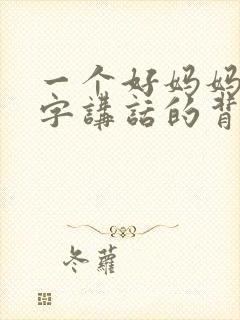 一个好妈妈
字講話的背
冬蘿